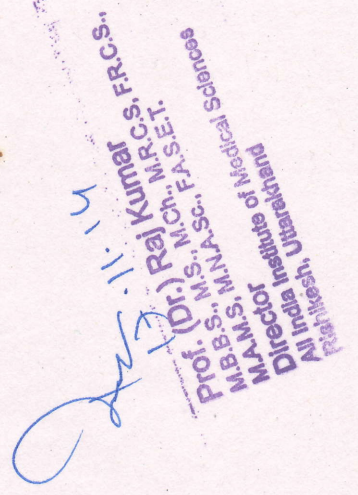 Prof. (Dr.) Raj Kumar
M.B.B.S., M.S., M.Ch., M.R.C.S, F.R.C.S.,
M.A.M.S, M.N.A.Sc., F.A.S.E.T.
Director
All India Institute of Medical Sciences
Rishikesh, Uttarakhand